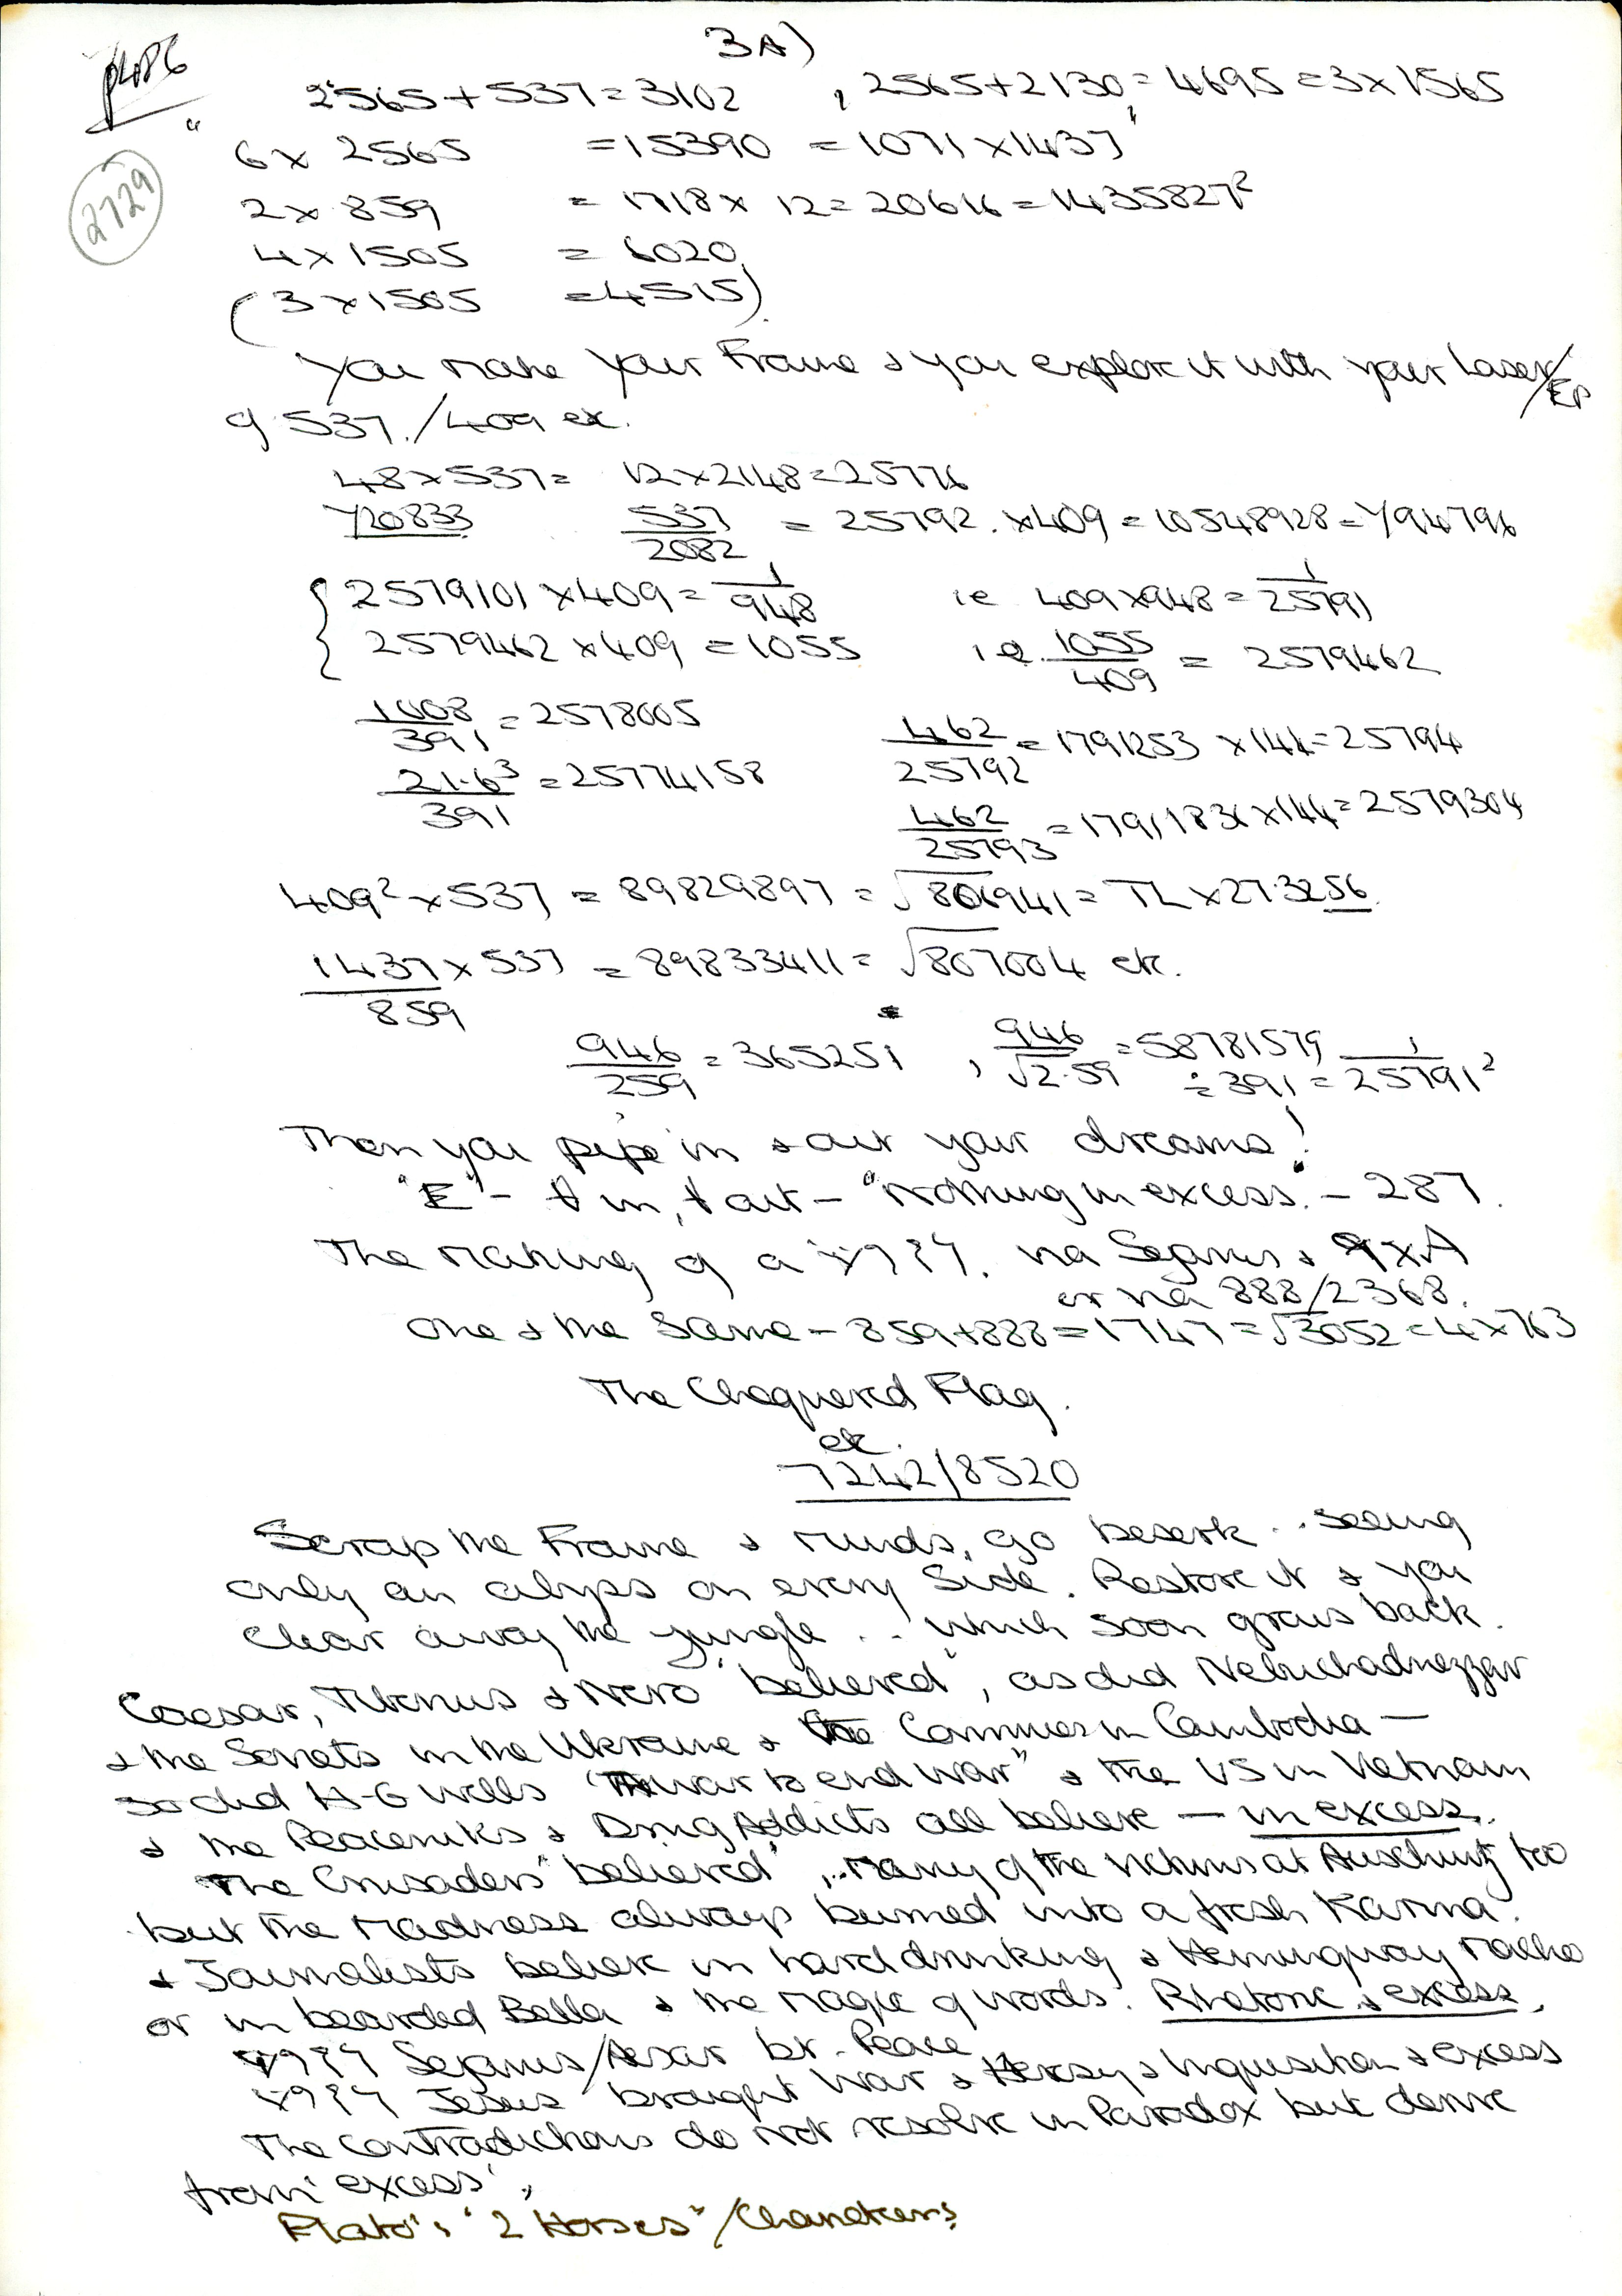 3A)
2565 + 537 = 3102 , 2565 + 2130 = 4695 = 3 x 1565
2729
6 x 2565 = 15390 = 1071 x 1437
2 x 859 = 1718 x 12 = 20616 = 1435827²
4 x 1505 = 6020
(3 x 1505 = 4515)
You make your Frame & you explore it with your Laser/
9 537./409 ex.
48 x 537 = 12 x 2148 = 25776
1/20833 537/2082 = 25792. x 409 = 10548928 = 1/94796
{ 2579101 x 409 = 1/948 ie 409 x 948 = 1/25791
2579462 x 409 = 1055 i.e 1055/409 = 2579462
1008/391 = 2578005 462/25792 = 1791253 x 144 = 25794
21.6³/391 = 25774158 462/25793 = 17911836 x 144 = 2579304
409² x 537 = 89829897 = √806941 = TL x 27.3256
1437/859 x 537 = 89833411 = √807004 etc.
946/259 = 365251 , 946/√2.59 = 58781579 ÷ 391 = 1/25791²
Then you pipe in & out your dreams!
"E" - t in, t out - "Nothing in excess." - 287.
The making of a via Sejanus & 9 x A
or via 888/2368.
One & the Same - 859 + 888 = 1747 = √3052 = 4 x 763
The Chequered Flag.
etc.
7242/8520
Scrap the Frame & minds, go beserk .. seeing
only an abyss on every side. Restore it & you
clear away the jungle .. which soon grows back.
Caesar, Tiberius & Nero "believed", as did Nebuchadnezzar
& the Soviets in the Ukraine & the Commies in Cambodia —
so did H-G Wells "war to end war" & the US in Vietnam
& the Peaceniks & Drug Addicts all believe — in excess.
The Crusaders "believed", .. many of the victims at Auschwitz too
but the madness always burned into a fresh Karma.
& Journalists believe in hard drinking & Hemingway
or in bearded Bella & the magic of words. Rhetoric & excess.
Sejanus/Aesar br. Peace
Jesus brought War & Heresy & Inquisition & excess
The contradictions do not resolve in Paradox but derive
from 'excess',
Plato's "2 Horses"/Charioteers